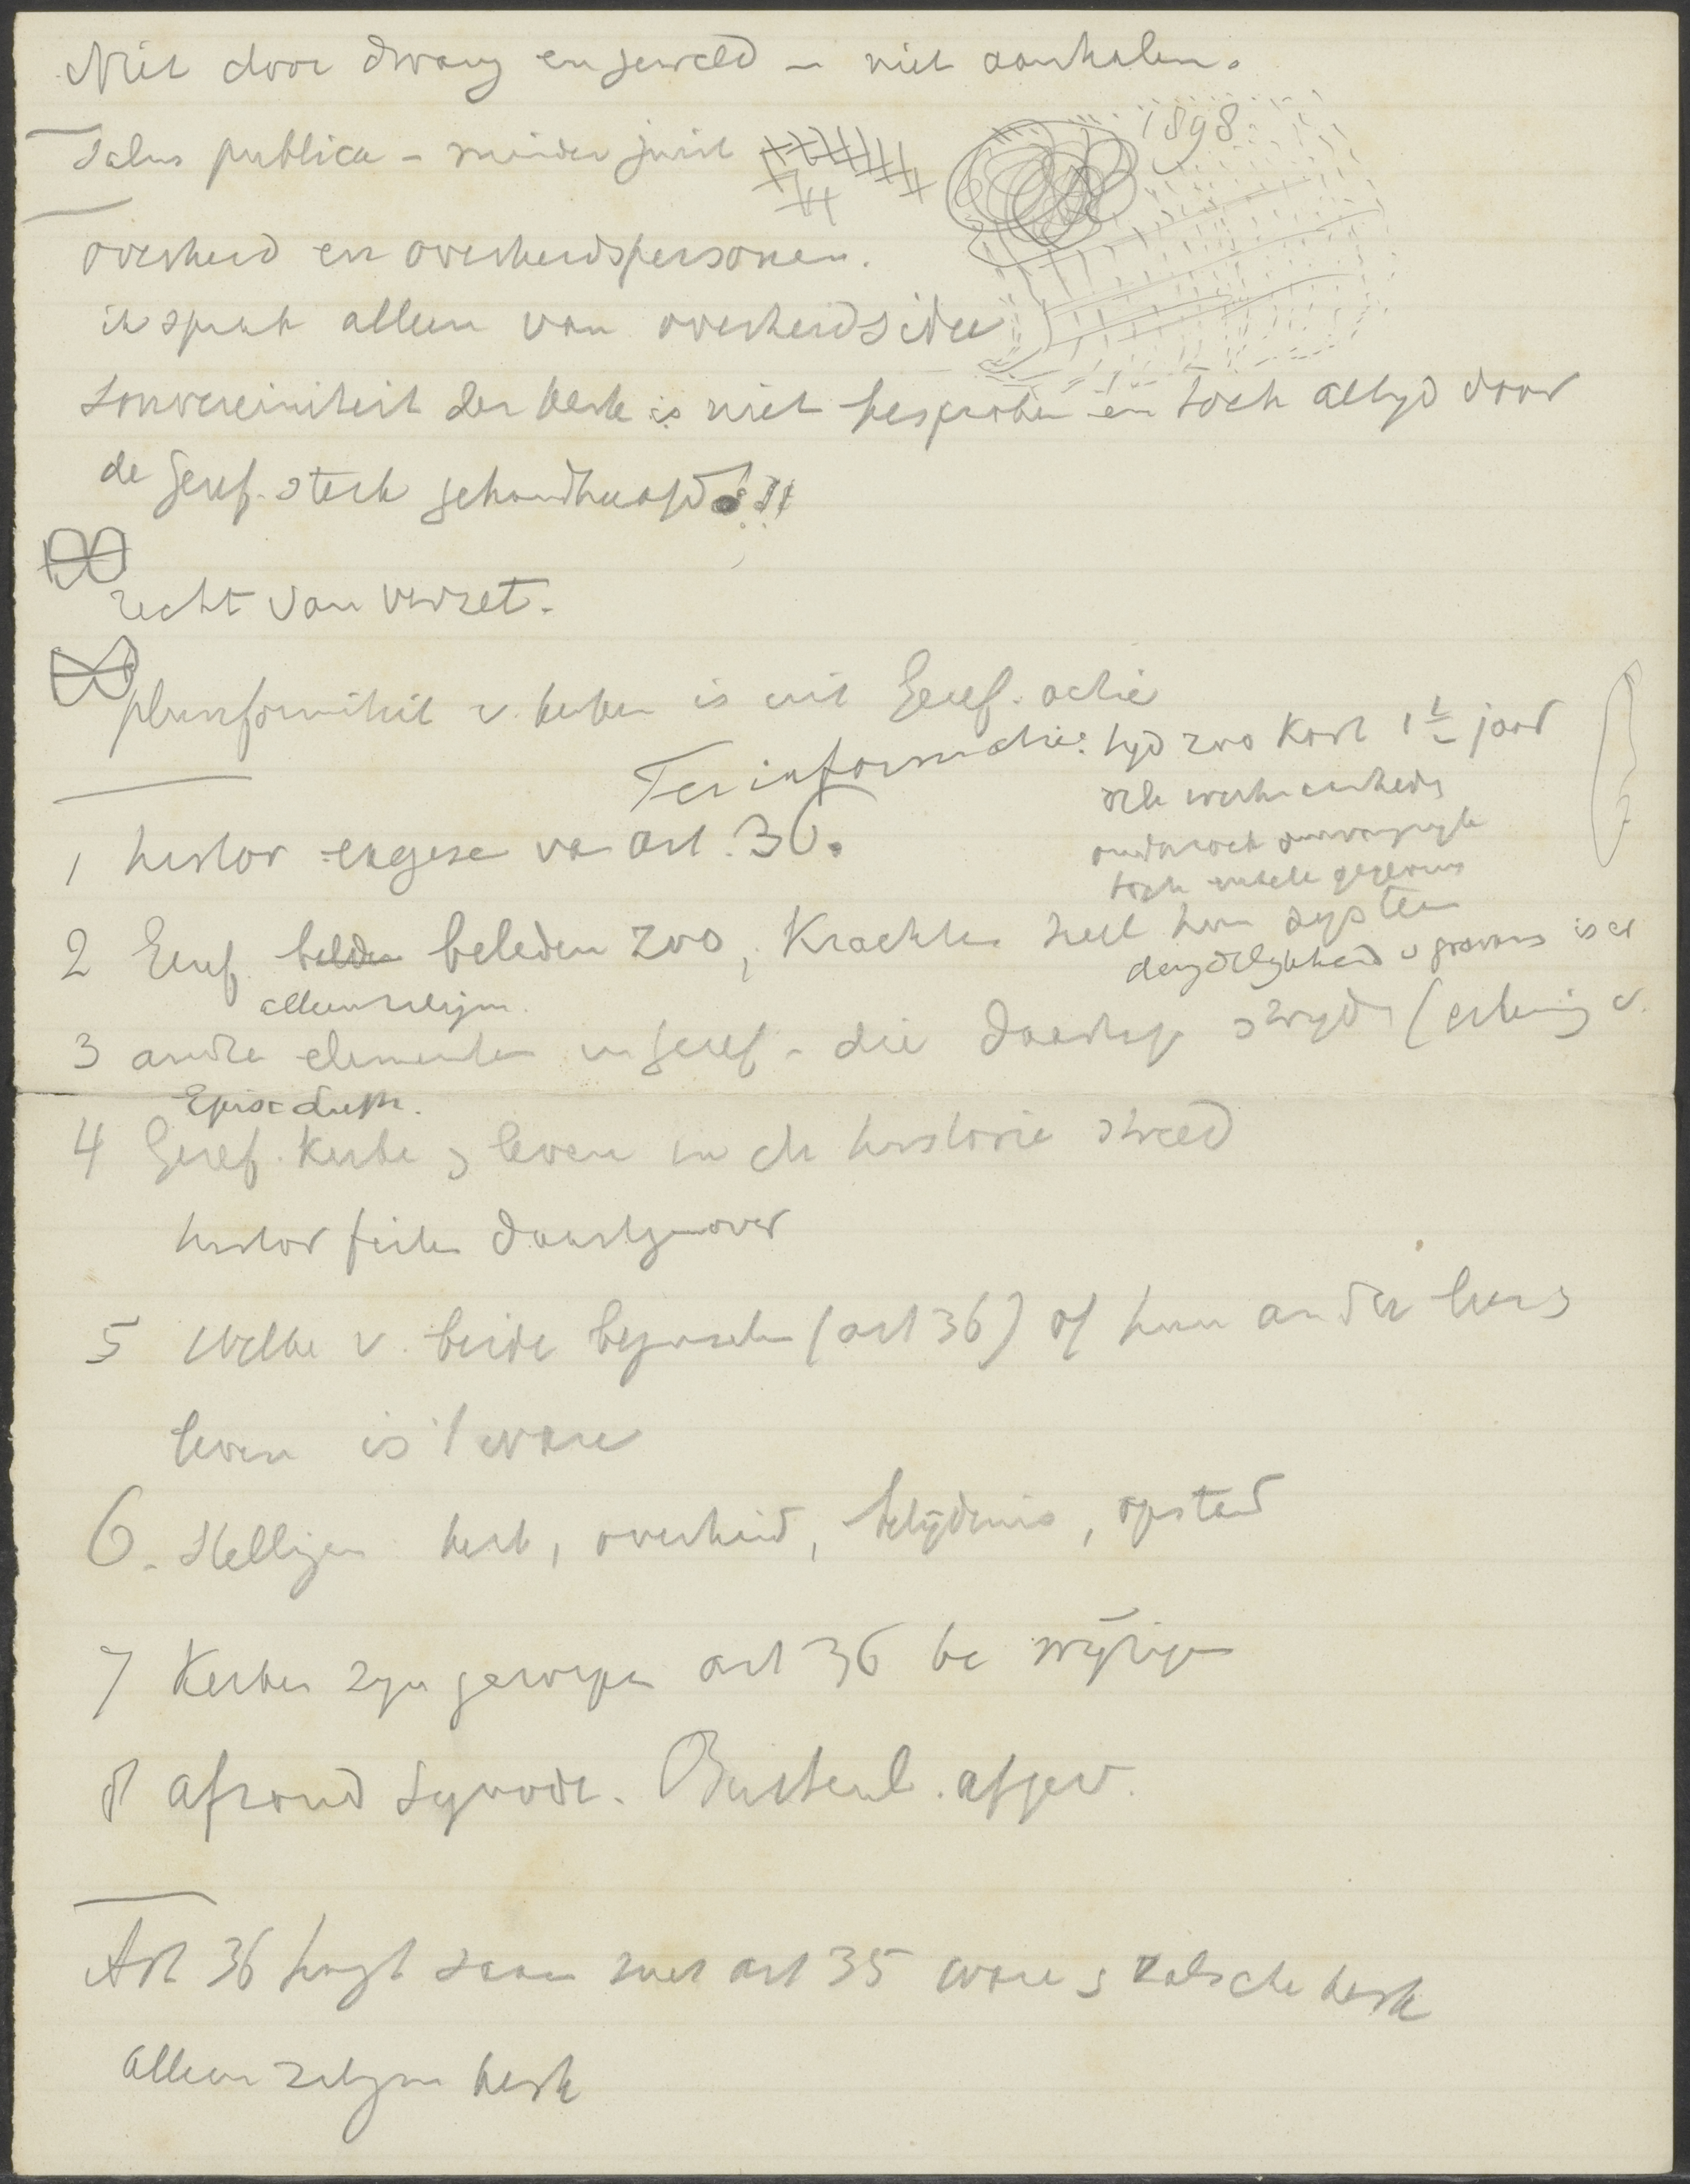 Niet door dwang en geweld – niet aanhalen.
1898
Salus publica – minder juist
overheid en overheidspersonen.
ik spreek alleen van overheidsidee
souvereiniteit der kerk is niet besproken en toch altyd door
de Geref. sterk gehandhaafd!!!
recht van verzet.
pluriformiteit v. kerken is uit Geref. actie
Ter informatie: tyd zoo kort 1e jaar
toch enkele gegevens
1 histor exegese va art. 36.
2 Geref. belden beleden zoo, Krachtens heel hun systeem
alleenzaligm.
3 andre elementen in Geref. die daartege stryden
Episc
4 Geref. Kerke s leven in de historie streed
histor feiten daartegenover
5 Welke v. beide beginselen (art 36) of hun ander kers
leven is 't ware
6. Stellingen kerk, overheid, belijdenis, opstand
7 Kerken zyn geroepen art 36 te wijzigen
8 afrond Synode. Buitenl. afgev.
Art 36 hangt saam met art 35 ware s valsche kerk
alleen zaligm kerk